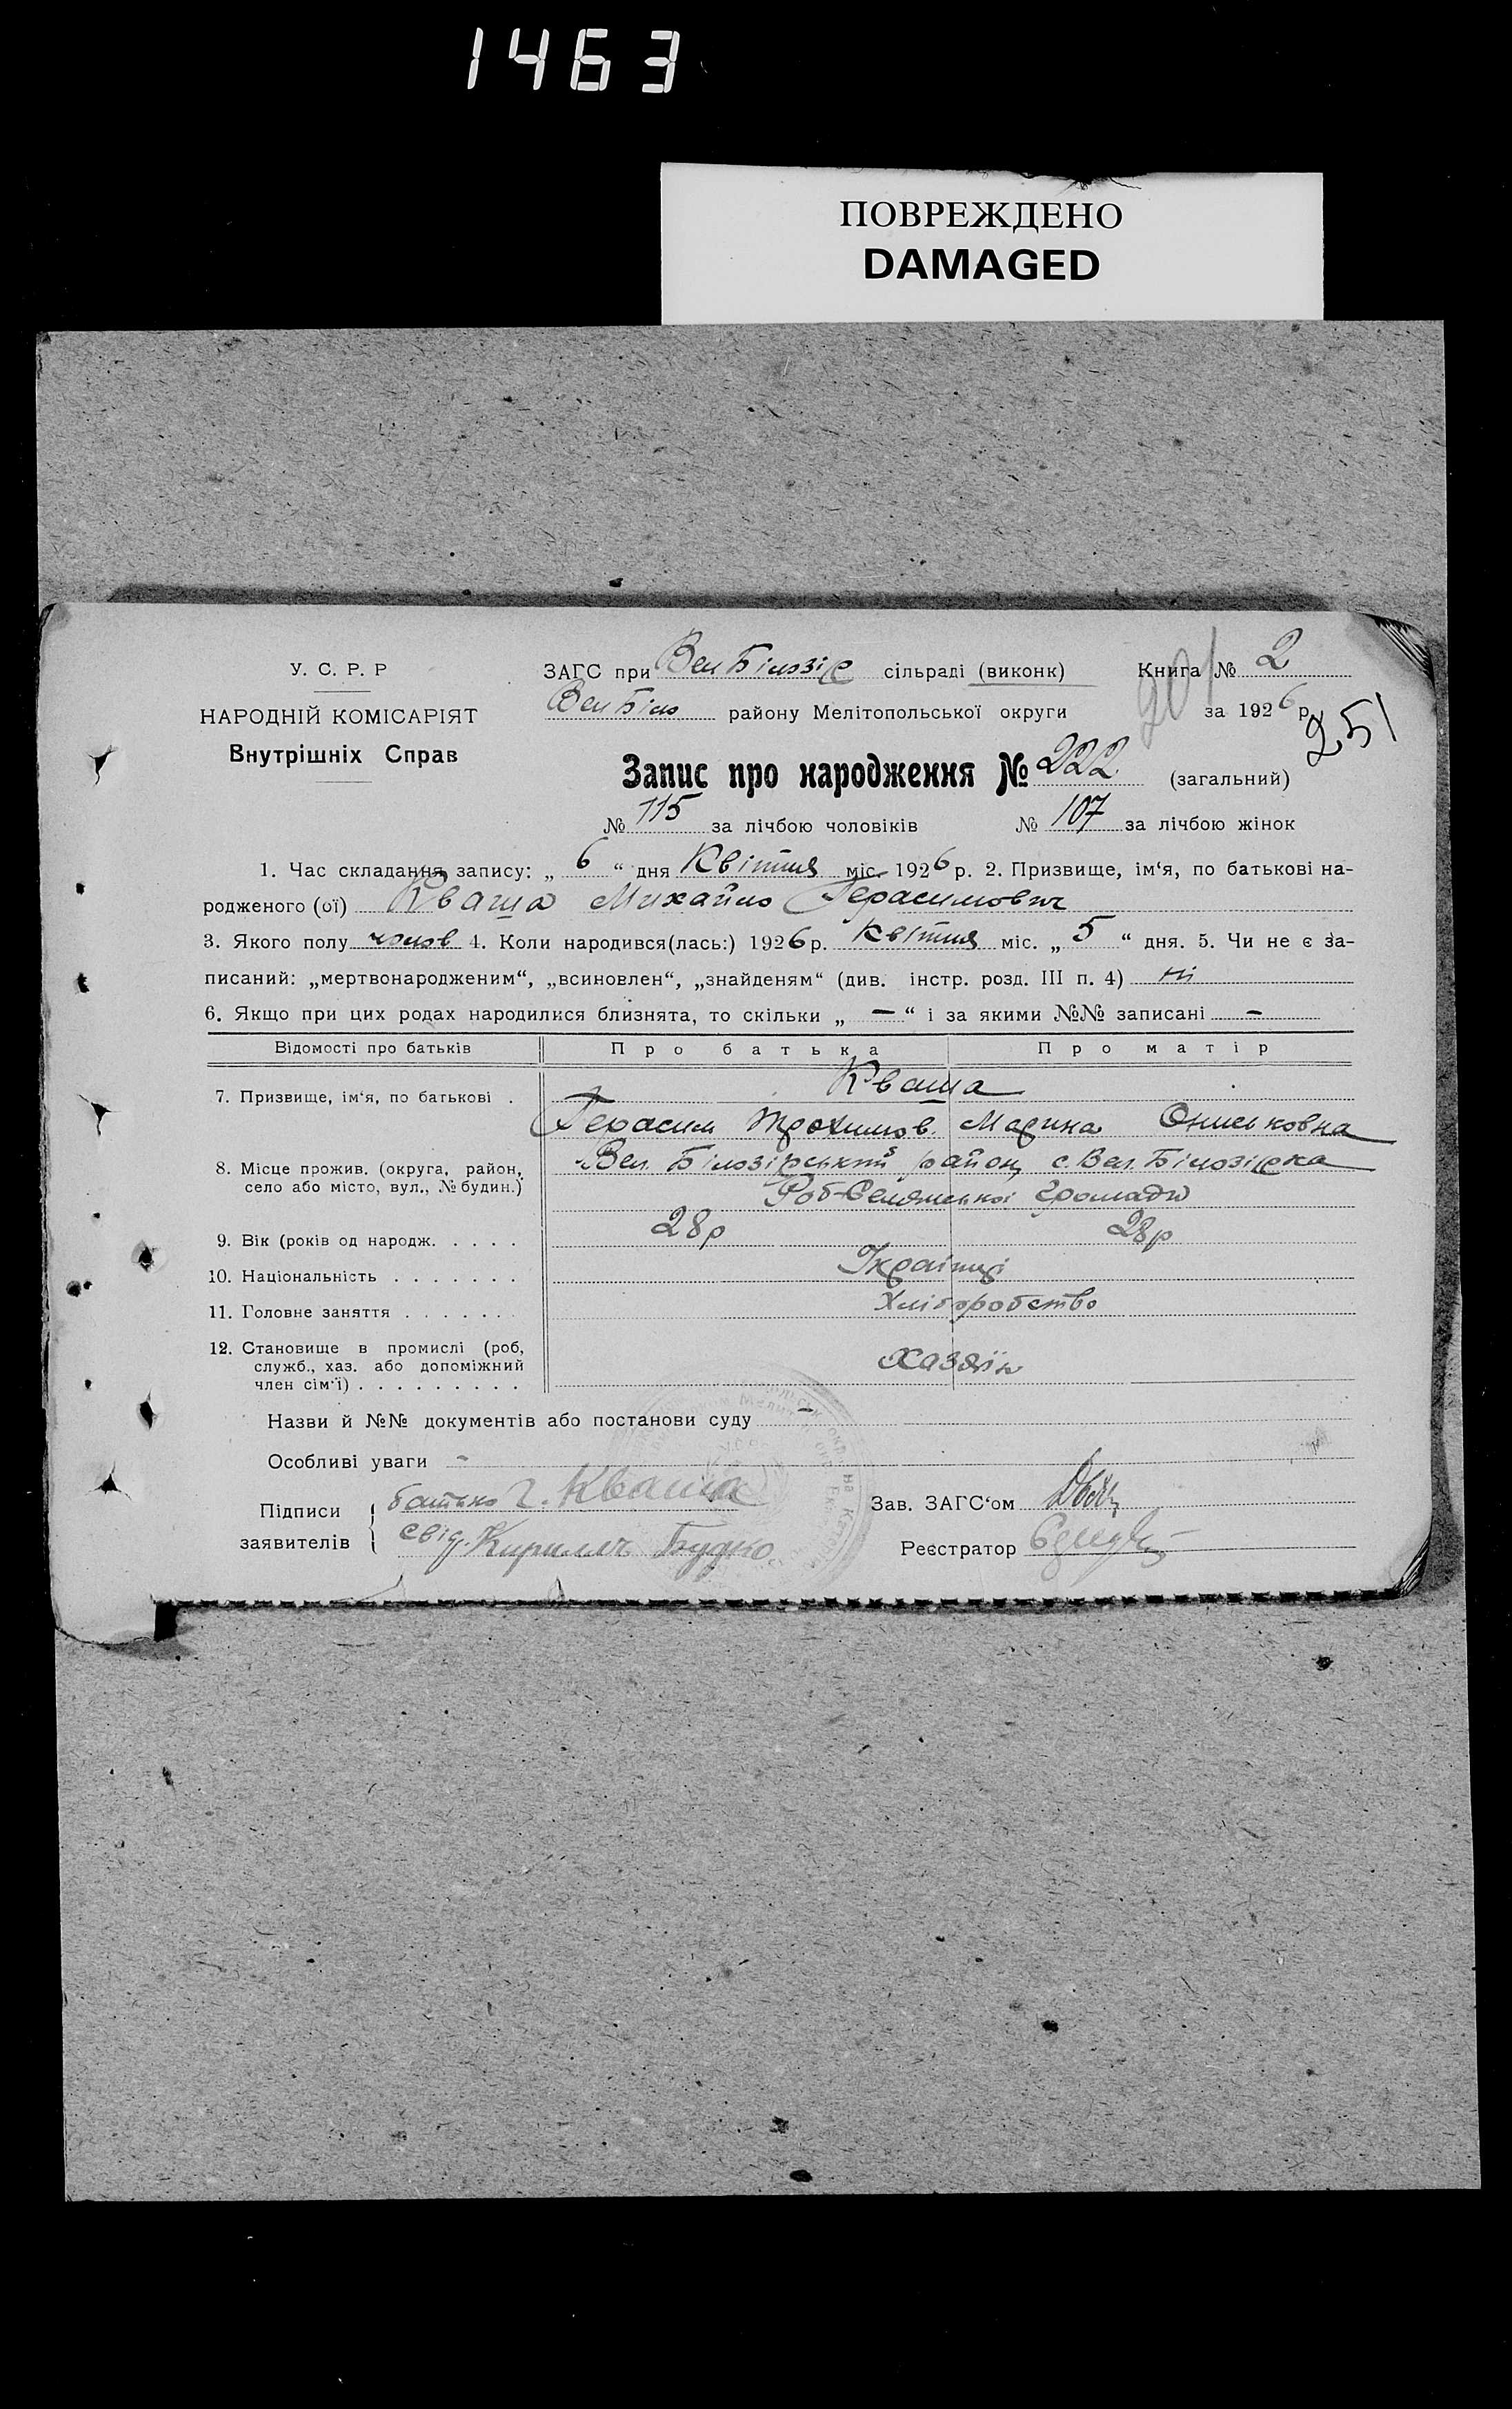 1463
ПОВРЕЖДЕНО
DAMAGED
У. С. Р. Р
НАРОДНІЙ КОМІСАРІЯТ
Внутрішніх Справ
ЗАГС при Вел Білозір сільраді (виконк) Книга № 2
Вел Біло району Мелітопольської округи за 1926 р.
201
251
Запис про народження № 222 (загальний)
№ 115 за лічбою чоловіків № 107 за лічбою жінок
1. Час складання запису: „ 6 “ дня Квітня міс. 1926 р. 2. Призвище, ім‘я, по батькові на-
родженого (ої) Кваша Михайло Герасимович
3. Якого полу чолов 4. Коли народився(лась:) 1926 р. Квітня міс. „ 5 “ дня. 5. Чи не є за-
писаний: „мертвонародженим“, „всиновлен“, „знайденям“ (див. інстр. розд. III п. 4) ні
6. Якщо при цих родах народилися близнята, то скільки „ — “ і за якими №№ записані —
Відомості про батьків Про батька Про матір
7. Призвище, ім‘я, по батькові . Кваша
Герасим Трохимов. Марина Ониськовна
8. Місце прожив. (округа, район, село або місто, вул., № будин.) Вел. Білозірський район, с. Вел. Білозірка
Роб-Селянської Громади
9. Вік (років од народж. . . . . 28р 28р
10. Національність . . . . . . . Українці
11. Головне заняття . . . . . . . Хліборобство
12. Становище в промислі (роб, служб., хаз. або допоміжний член сім‘ї) . . . . . . . . . Хазяїн
Назви й №№ документів або постанови суду —
Особливі уваги -
Підписи заявителів батько Г. Кваша
свід. Кириллъ Будко
Зав. ЗАГС‘ом
Реєстратор